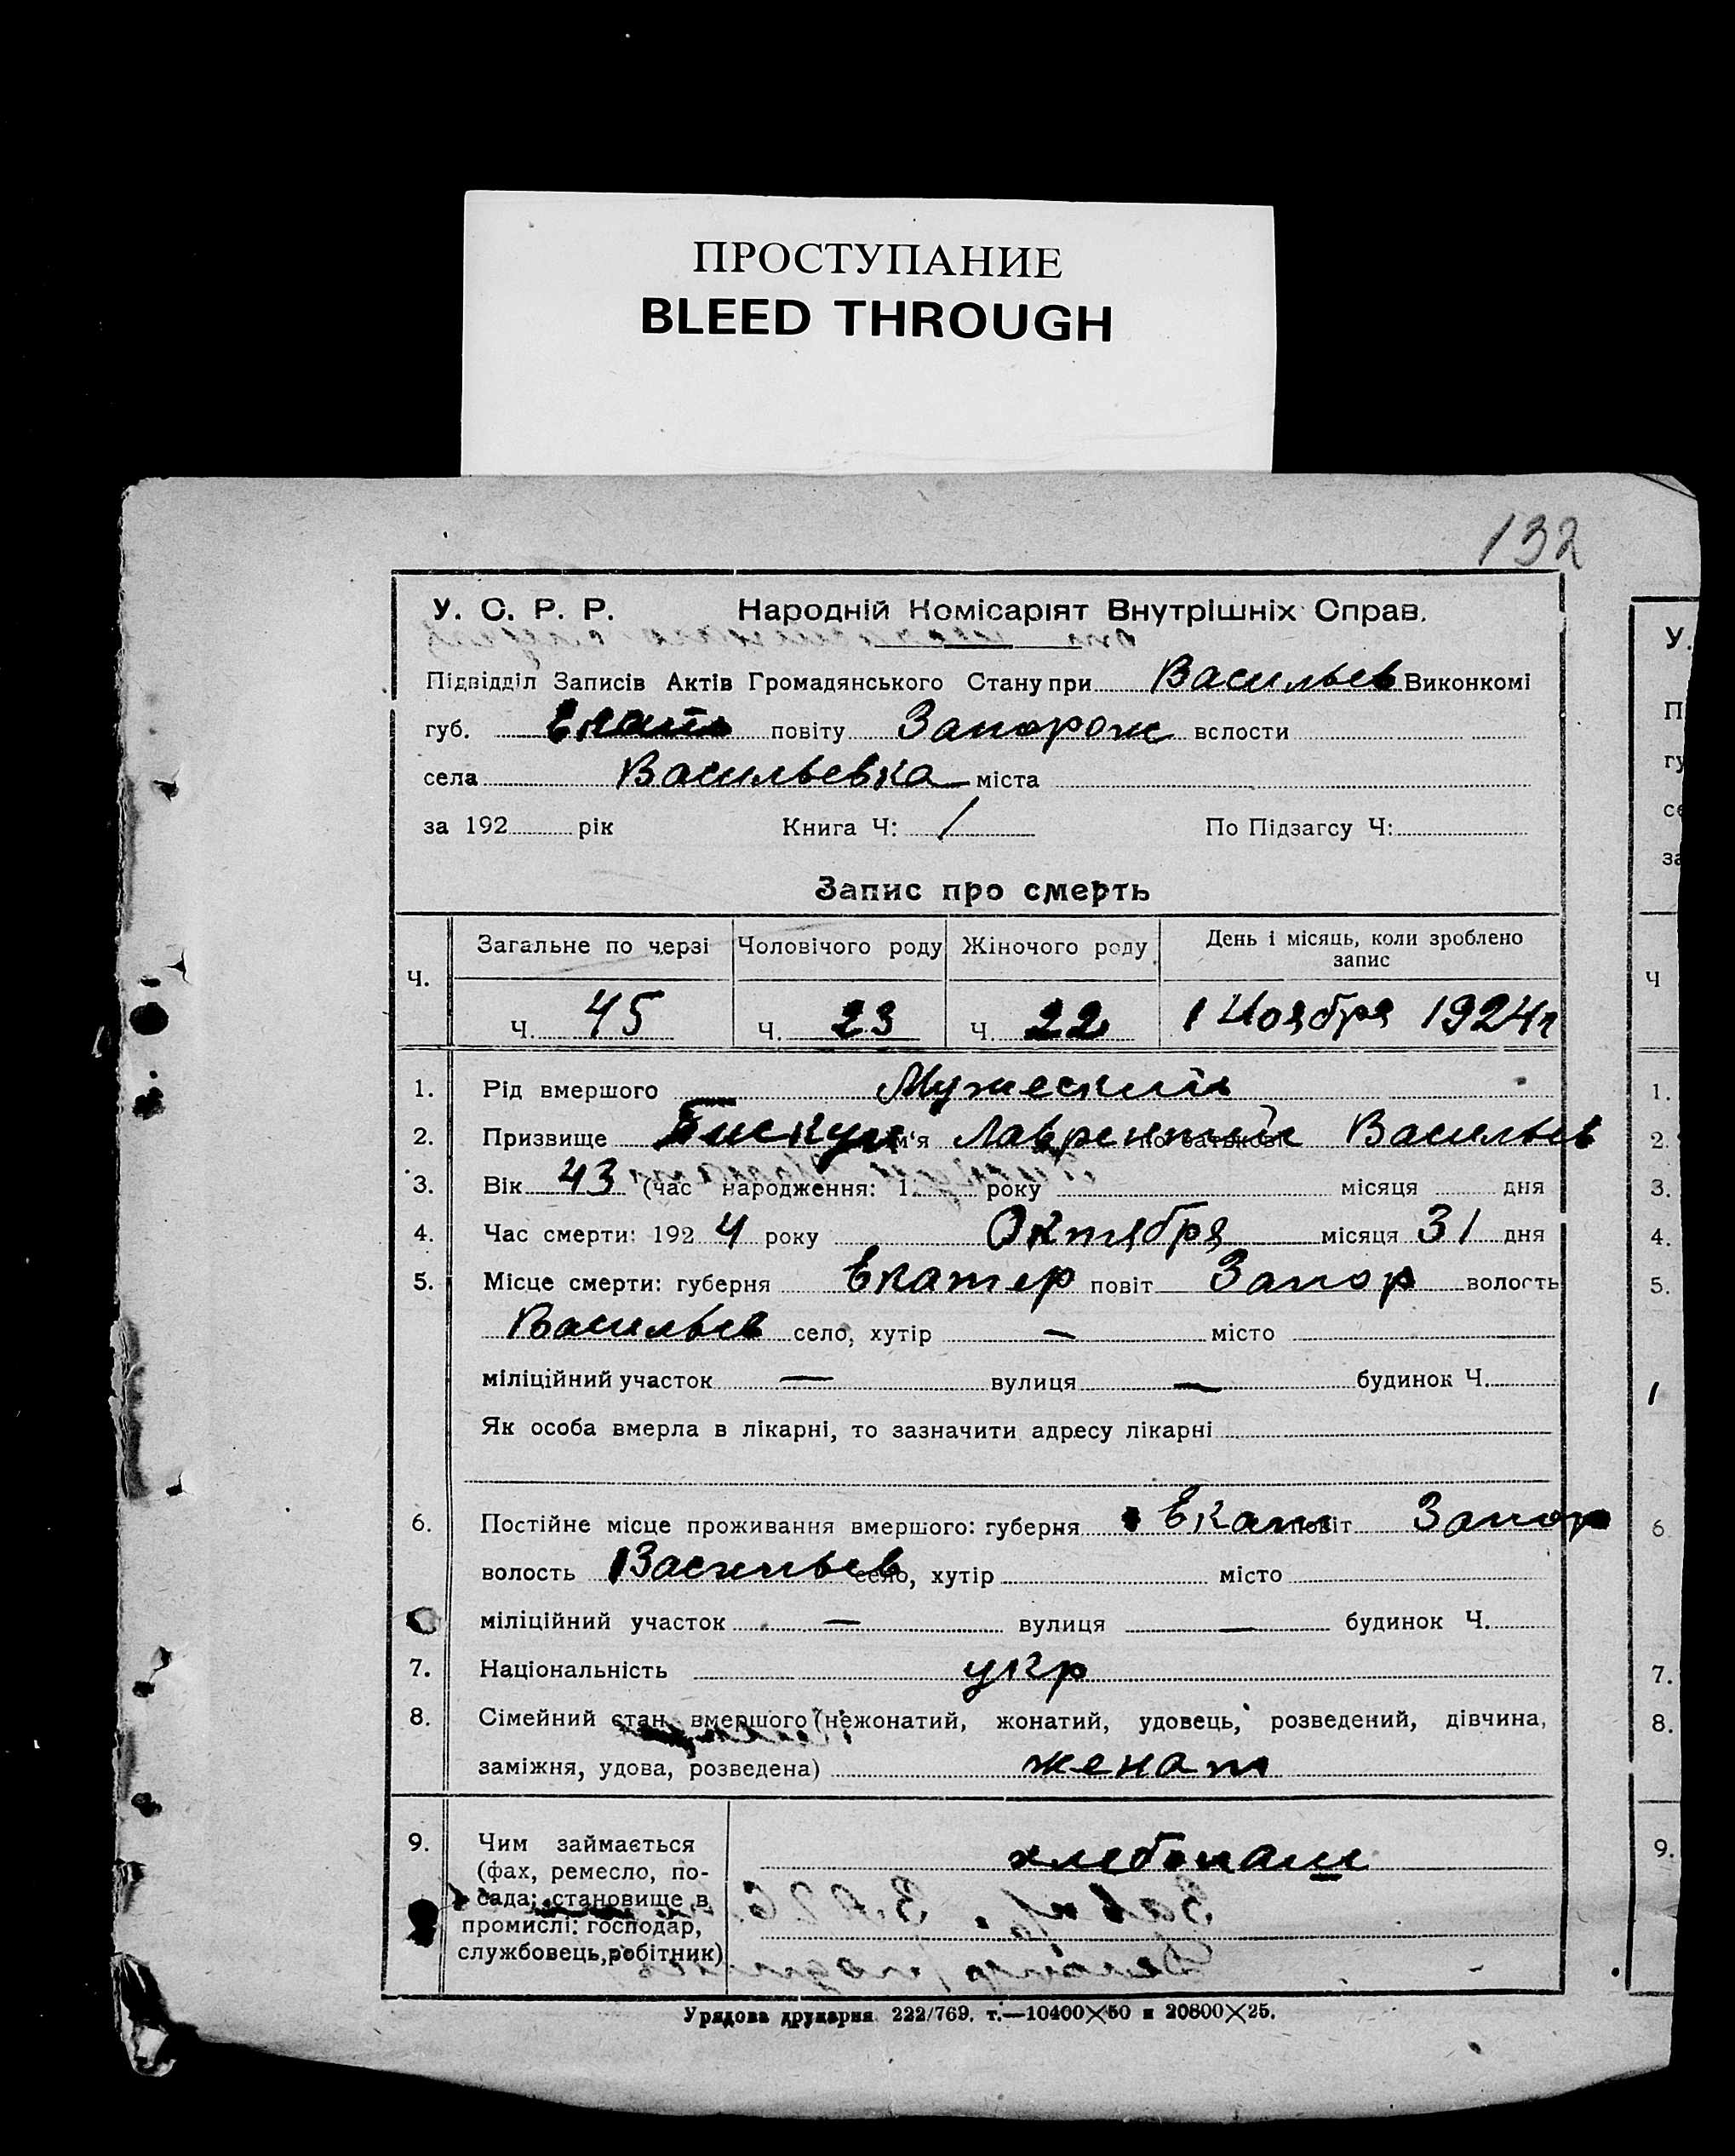 ПРОСТУПАНИЕ
BLEED THROUGH
132
У. С. Р. Р. Народній Комісаріят Внутрішніх Справ.
Підвідділ Записів Актів Громадянського Стану при Васильев Виконкомі
губ. Екат повіту Запорож вслости
села Васильевка міста
за 192 рік Книга Ч: 1 По Підзагсу Ч:
Запис про смерть
Ч. Загальне по черзі Чоловічого роду Жіночого роду День і місяць, коли зроблено запис
Ч. 45 Ч. 23 Ч. 22 1 Ноября 1924г
1. Рід вмершого Мужеский
2. Призвище Пискун ім'я Лаврентий по батькові Васильев
3. Вік 43 (час народження: 1 року місяця дня
4. Час смерти: 1924 року Октября місяця 31 дня
5. Місце смерти: губерня Екатер повіт Запор волость
Васильев село, хутір — місто
міліційний участок — вулиця — будинок Ч.
Як особа вмерла в лікарні, то зазначити адресу лікарні
6. Постійне місце проживання вмершого: губерня Екат повіт Запор
волость Васильев село, хутір місто
міліційний участок — вулиця — будинок Ч.
7. Національність укр
8. Сімейний стан вмершого (нежонатий, жонатий, удовець, розведений, дівчина,
заміжня, удова, розведена) женат
9. Чим займається хлебопаш
(фах, ремесло, по-
сада; становище в
промислі: господар,
службовець, робітник)
Урядова друкарня 222/769. т.—10400×50 и 20800×25.
У.
П
гу
се
за
Ч
1.
2.
3.
4.
5.
6
7.
8.
9.